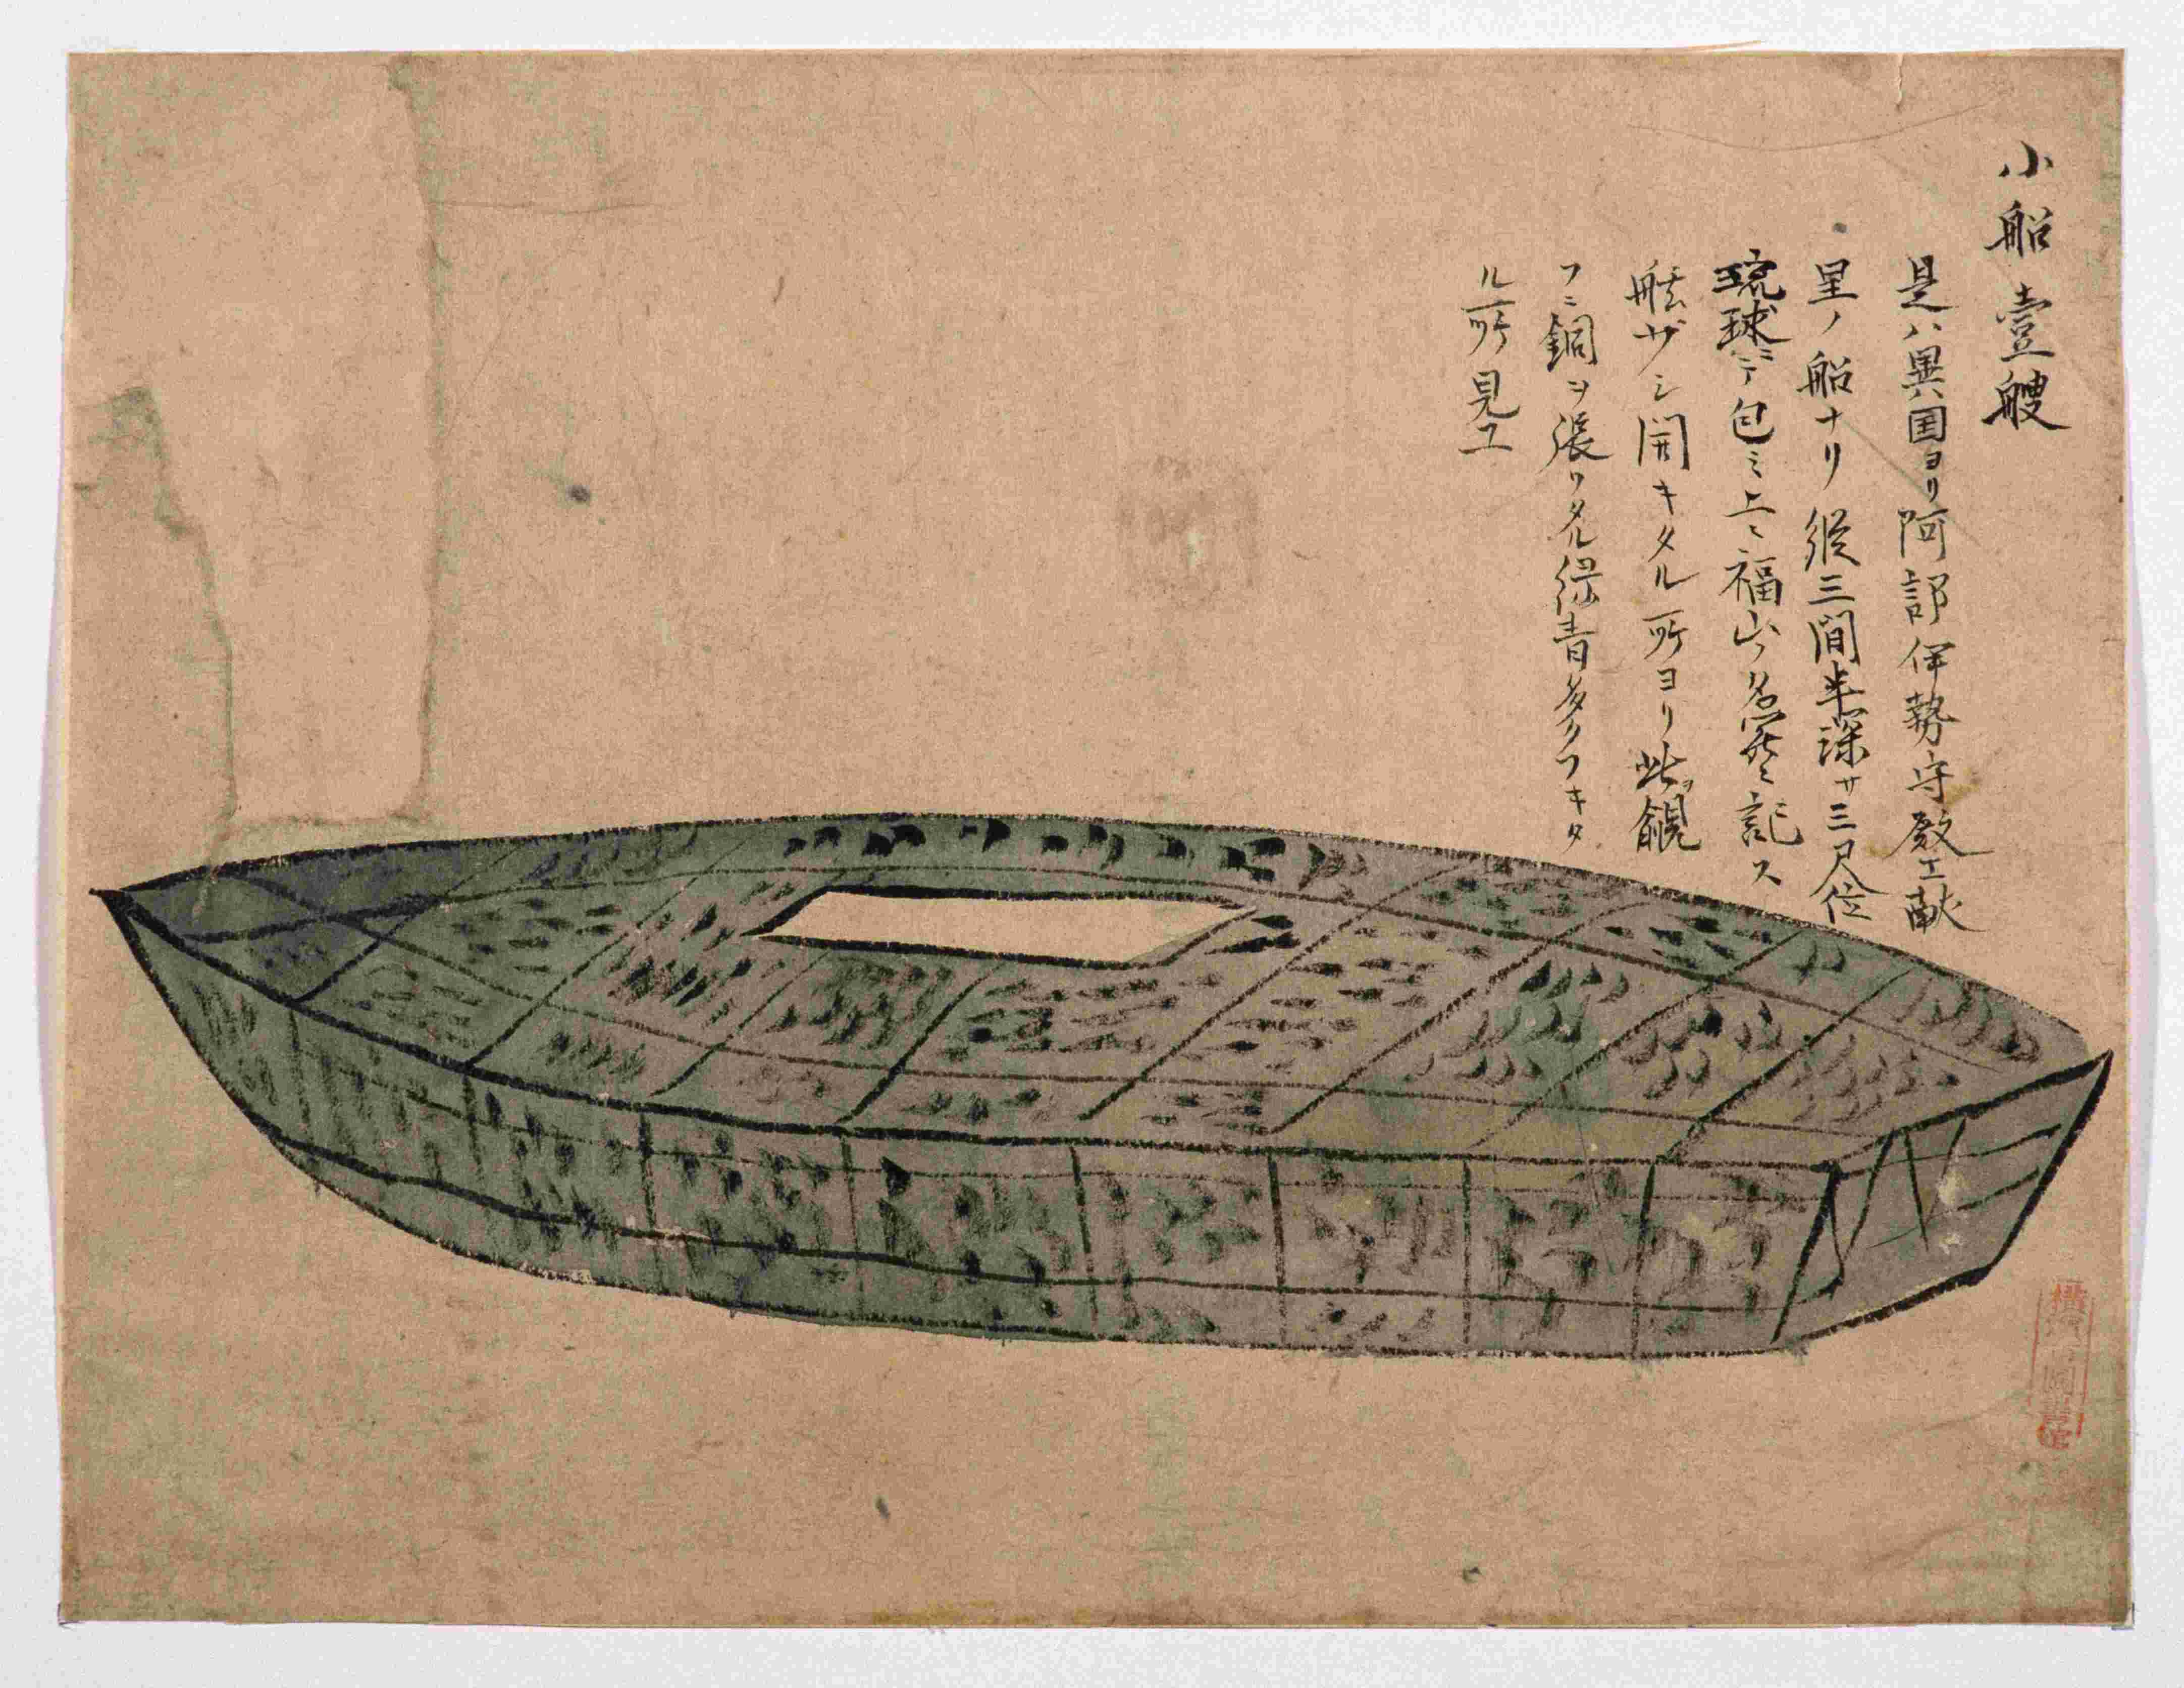 小船壹艘
是ハ異国ヨリ阿部伊勢守殿エ献
呈ノ船ナリ縦三間半深サ三尺位
琉球ニテ包ミ上ニ福山ノ名ニ記ス
舷ザシ開キタル所ヨリ此ヲ覗
フニ銅ヲ張リタル緑青多クフキタ
ル所見エ